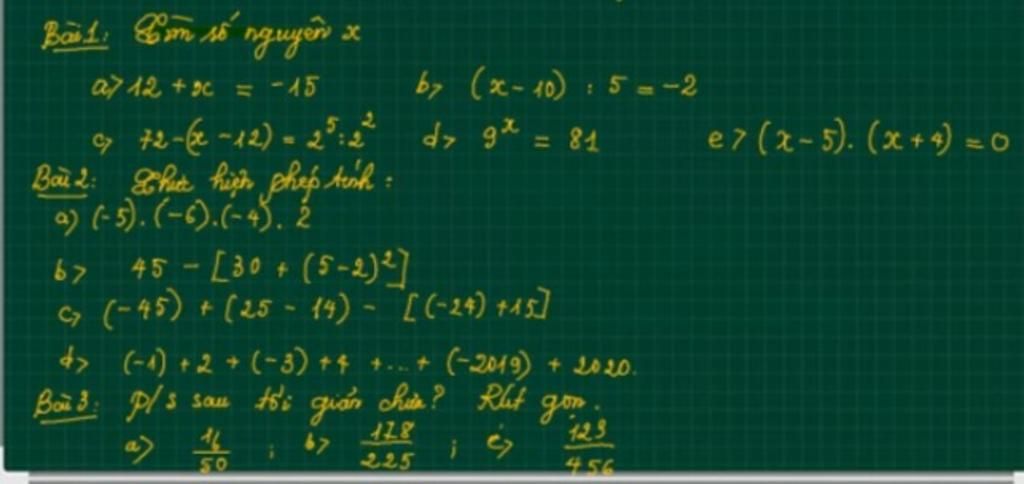 Bài 1: Tìm số nguyên x
a> 12 + x = -15 b> (x - 10) : 5 = -2
c> 72 - (x - 12) = 2⁵ : 2² d> 9ˣ = 81 e> (x - 5) . (x + 4) = 0
Bài 2: Thực hiện phép tính :
a) (-5) . (-6) . (-4) . 2
b> 45 - [30 + (5 - 2)²]
c> (-45) + (25 - 14) - [(-24) + 15]
d> (-1) + 2 + (-3) + 4 + ... + (-2019) + 2020.
Bài 3: P/s sau tối giản chưa? Rút gọn.
a> 16/50 ; b> 178/225 ; c> 123/456